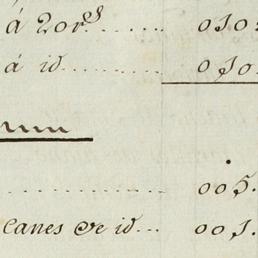 á 20 r.s ........ 010
á id ........... 010
005.
Canes &e id... 001.